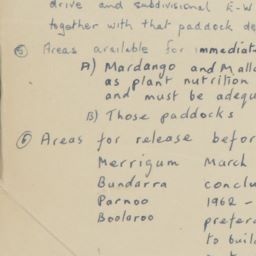 drive and subdivisional E-W
together with that paddock de
⑤ Areas available for immediat
A) Mardango and Mall
as plant nutrition
and must be adequ
B) Those paddocks
⑥ Areas for release befor
Merrigum March
Bundarra conclu
Parnoo 1962 -
Boolaroo prefer
to buil